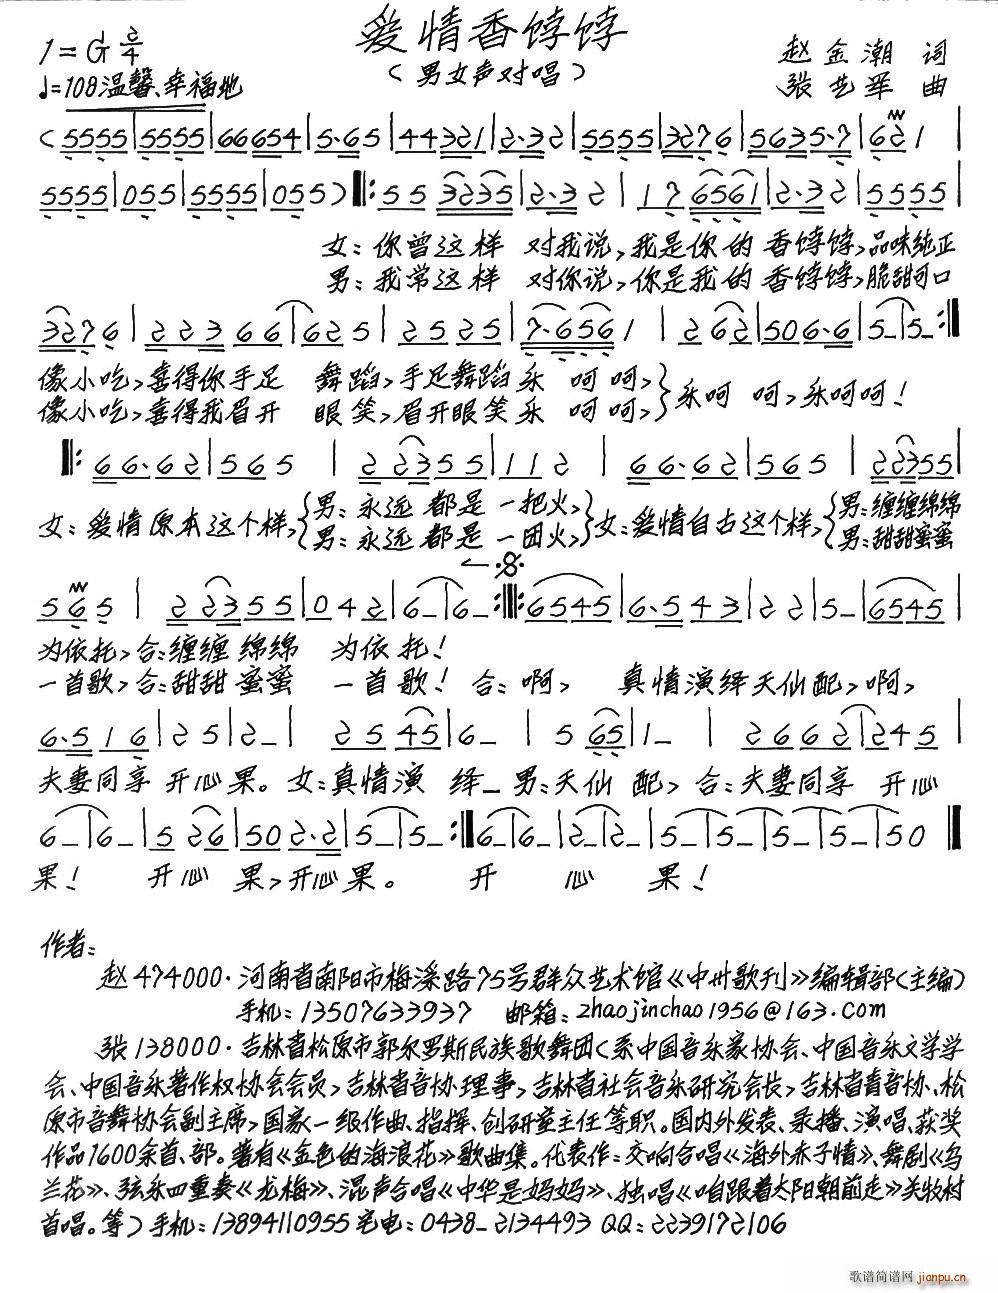 爱情香饽饽
（男女声对唱）
1=G 2/4
♩=108 温馨、幸福地
赵金潮 词
张艺军 曲
(5555|5555|66654|5·65|44321|2·32|5555|3276|5635·7|621|
5555|055|5555|055)‖:55 3235|2·32|17 6561|2·32|5555|
女：你曾这样 对我说，我是你的 香饽饽，品味纯正
男：我常这样 对你说，你是我的 香饽饽，脆甜可口
3276|22366|625|2525|7·6561|262|506·6|5–|5–:‖
像小吃，喜得你手足 舞蹈，手足舞蹈乐 呵呵，}乐呵 呵，乐呵呵！
像小吃，喜得我眉开 眼笑，眉开眼笑乐 呵呵，
‖:66·62|565|22355|112|66·62|565|22355|
女：爱情原本这个样，{男：永远 都是 一把火，}女：爱情自古这个样，{男：缠缠绵绵
男：永远 都是 一团火， 男：甜甜蜜蜜
565|22355|042|6–|6–:‖:6545|6·543|22|5–|6545|
为依托，合：缠缠 绵绵 为依托！
一首歌，合：甜甜 蜜蜜 一首歌！ 合：啊， 真情演绎天仙配，啊，
6·516|25|2–|2545|6–|565|1–|2662|245|
夫妻同享 开心果。女：真情演 绎–男：天仙 配，合：夫妻同享 开心
6–|6–|526|502·2|5–|5–:‖6–|6–|2–|2–|5–|5–|5–|5–|50‖
果！ 开心 果，开心果。 开 心 果！
作者：
赵 474000·河南省南阳市梅溪路75号群众艺术馆《中州歌刊》编辑部（主编）
手机：13507633937 邮箱：zhaojinchao1956@163.com
张 138000·吉林省松原市郭尔罗斯民族歌舞团（系中国音乐家协会、中国音乐文学学
会、中国音乐著作权协会会员，吉林省音协理事，吉林省社会音乐研究会长，吉林省青音协、松
原市音舞协会副主席，国家一级作曲、指挥、创研室主任等职。国内外发表、录播、演唱、获奖
作品1600余首、部。著有《金色的海浪花》歌曲集。代表作：交响合唱《海外赤子情》、舞剧《乌
兰花》、弦乐四重奏《龙梅》、混声合唱《中华是妈妈》、独唱《咱跟着太阳朝前走》关牧村
首唱。等）手机：13894110955 宅电：0438–2134493 QQ：2239172106
歌谱简谱网 jianpu.cn